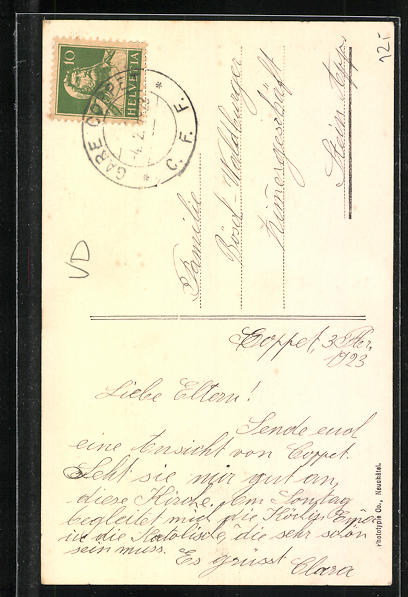 10
HELVETIA
GARE COPPET
C. F. F.
12.-
VD
Familie
Bösch-Waldburger
Zimmergeschäft
Stein App.
Coppet, 3.
1923
Liebe Eltern!
Sende euch
eine Ansicht von Coppet.
Seht sie nur gut an,
diese Kirche. Am Sontag
begleitet mich die Köchin
in die Katolische, die sehr schön
sein muss.
Es grüsst Clara
Phototypie Co., Neuchâtel.